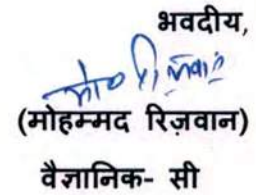 भवदीय,
मो० रिज़वान
(मोहम्मद रिज़वान)
वैज्ञानिक- सी